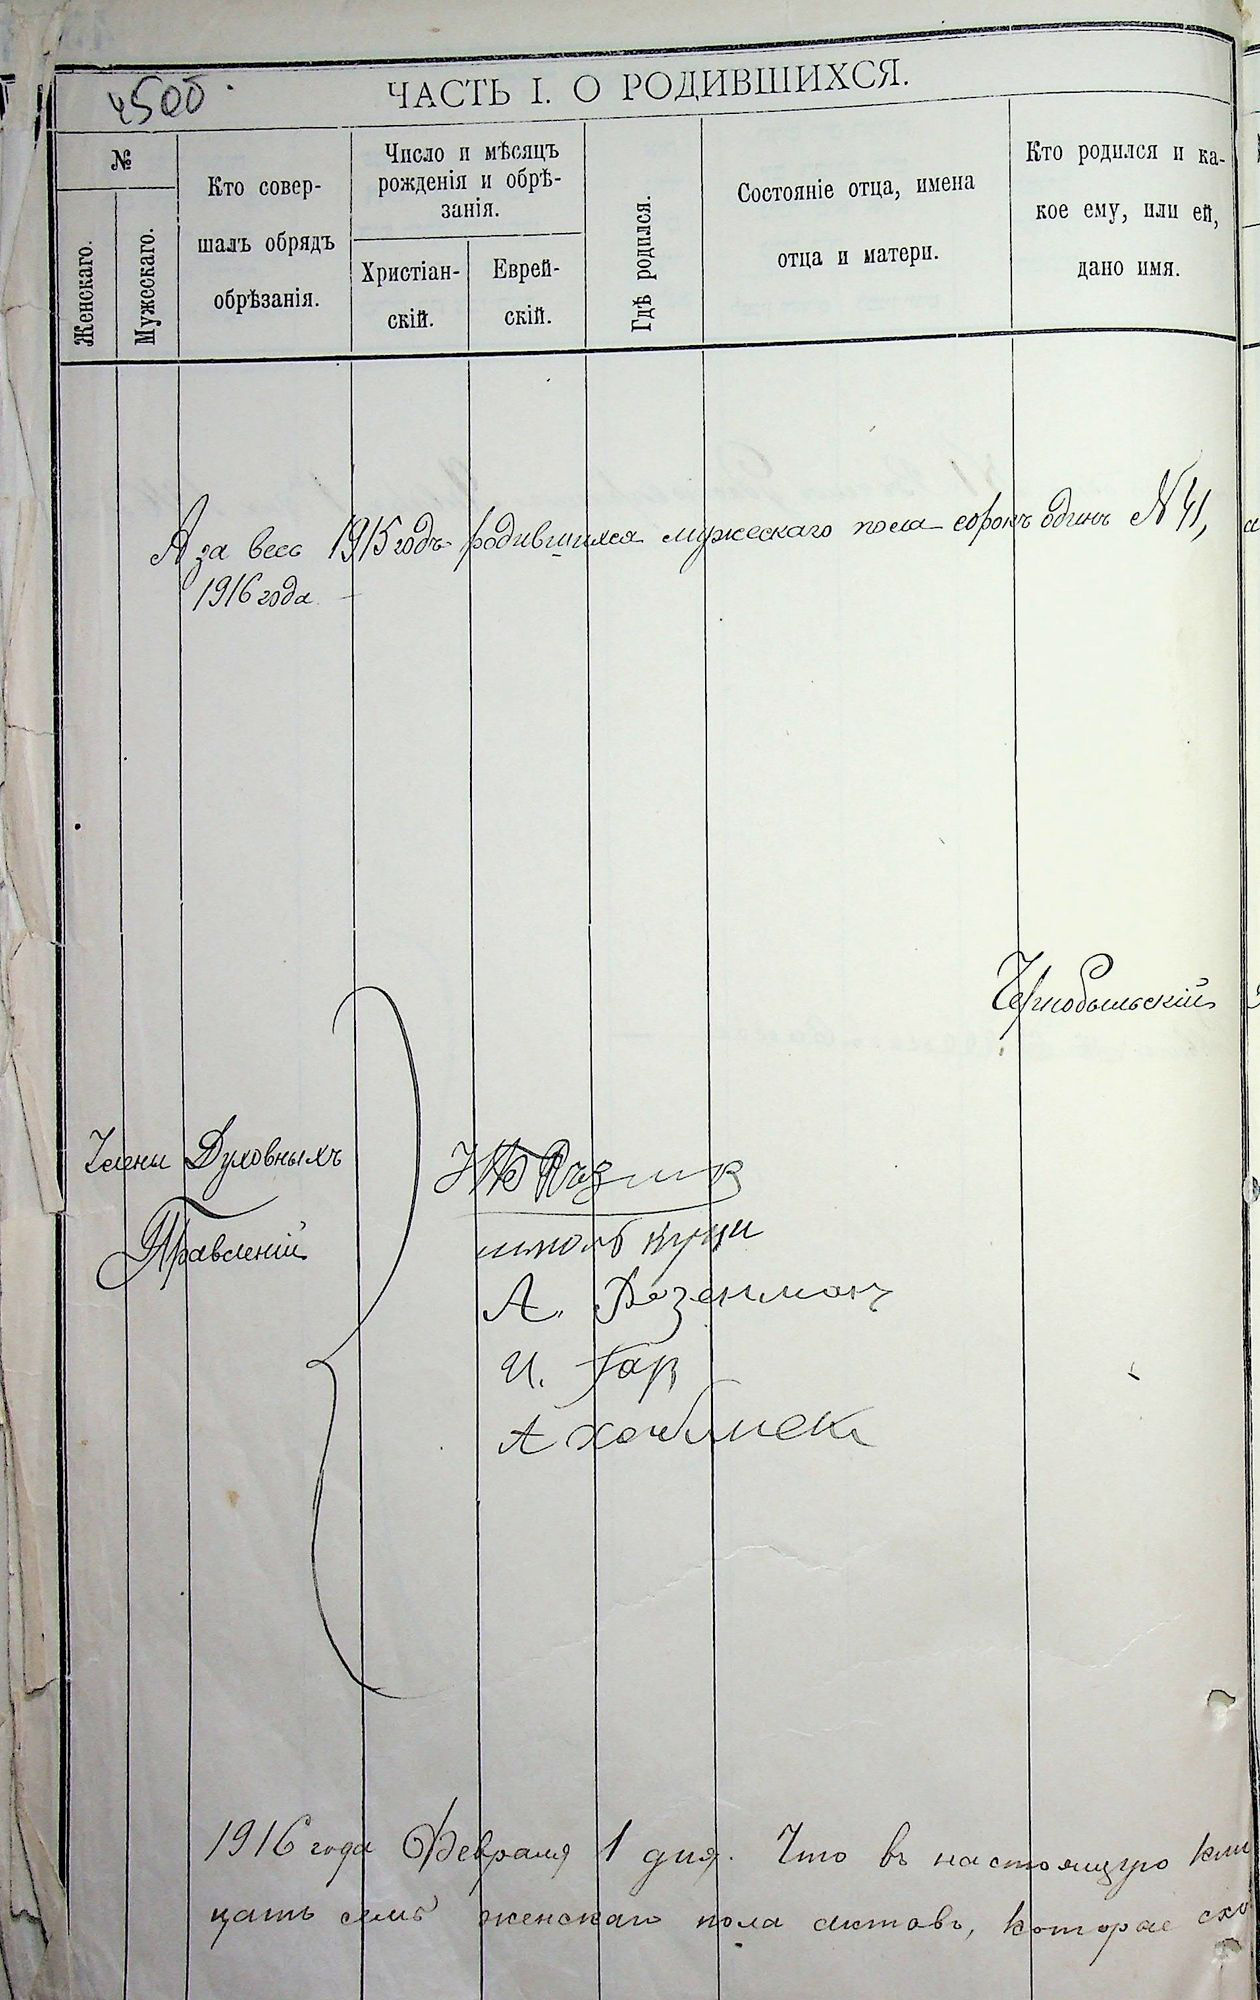 4500
ЧАСТЬ I. О РОДИВШИХСЯ.
№
Женскаго.
Мужескаго.
Кто совер-
шалъ обрядъ
обрѣзанія.
Число и мѣсяцъ
рожденія и обрѣ-
занія.
Христіан-
скій.
Еврей-
скій.
Гдѣ родился.
Состояніе отца, имена
отца и матери.
Кто родился и ка-
кое ему, или ей,
дано имя.
А за весь 1915 годъ родившихся мужескаго пола сорокъ одинъ N 41,
1916 года
Чернобыльскій
Члены Духовныхъ
Правленій
А.
И. Гар
А
1916 года Февраля 1 дня. Что въ настоящую кни
цать семь женскаго пола актовъ, которые схо